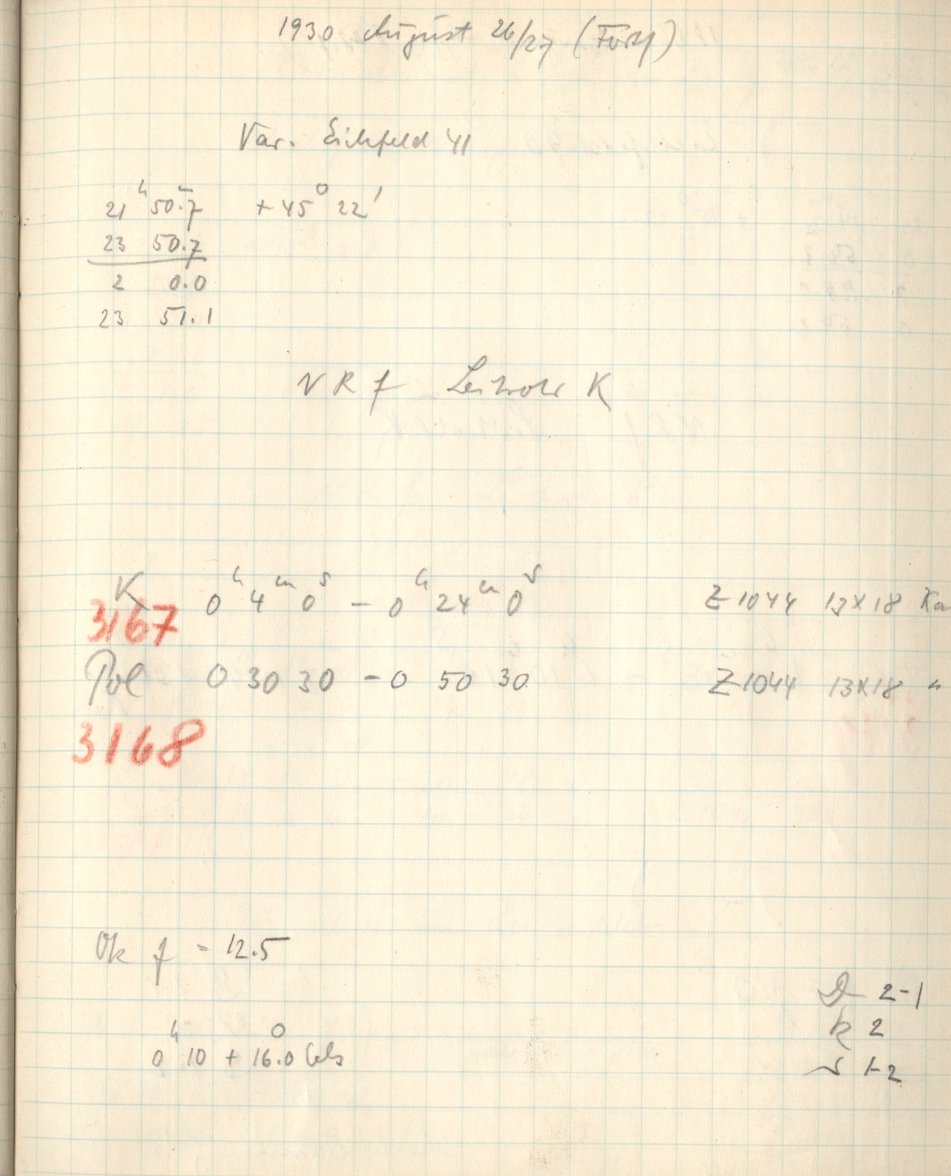 1930 August 26/27 (Forts)
Var. Eichfeld 41
21ʰ 50.ᵐ7 +45° 22'
23 50.7
2 0.0
23 51.1
N R f Leitrohr K
K 0ʰ 4ᵐ 0ˢ – 0ʰ 24ᵐ 0ˢ Z 1044 13×18 Ka
3167
Pol 0 30 30 – 0 50 30 Z 1044 13×18 "
3168
Ok f = 12.5
D 2-1
0ʰ 10 + 16.°0 Cels
k 2
s 1-2